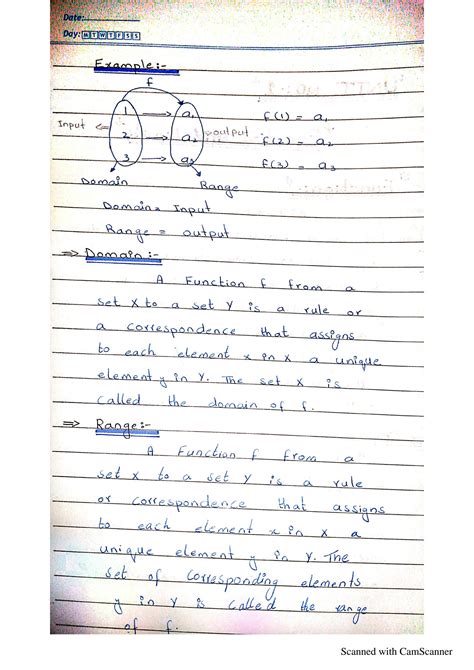 Date:
Day: M T W T F S S
Example:-
f
1 → a1 f(1) = a1
Input <= 2 → a2 => output f(2) = a2
3 → a3 f(3) = a3
Domain Range
Domain = Input
Range = output
=> Domain :-
A Function f from a
set X to a set Y is a rule or
a correspondence that assigns
to each element x in X a unique
element y in Y. The set X is
called the domain of f.
=> Range:-
A Function f from a
set X to a set Y is a rule
or correspondence that assigns
to each element x in X a
unique element y in Y. The
set of corresponding elements
y in Y is called the range
of f.
Scanned with CamScanner